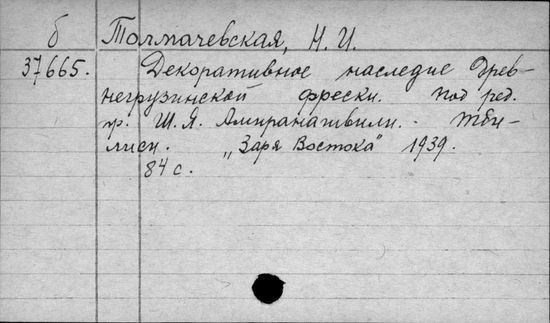 б Толмачевская, Н. И.
37665. Декоративное наследие Древ-
негрузинской фрески. Под ред.
пр. Ш. Я. Амиранашвили. - Тби-
лиси. „Заря Востока" 1939.
84 с.